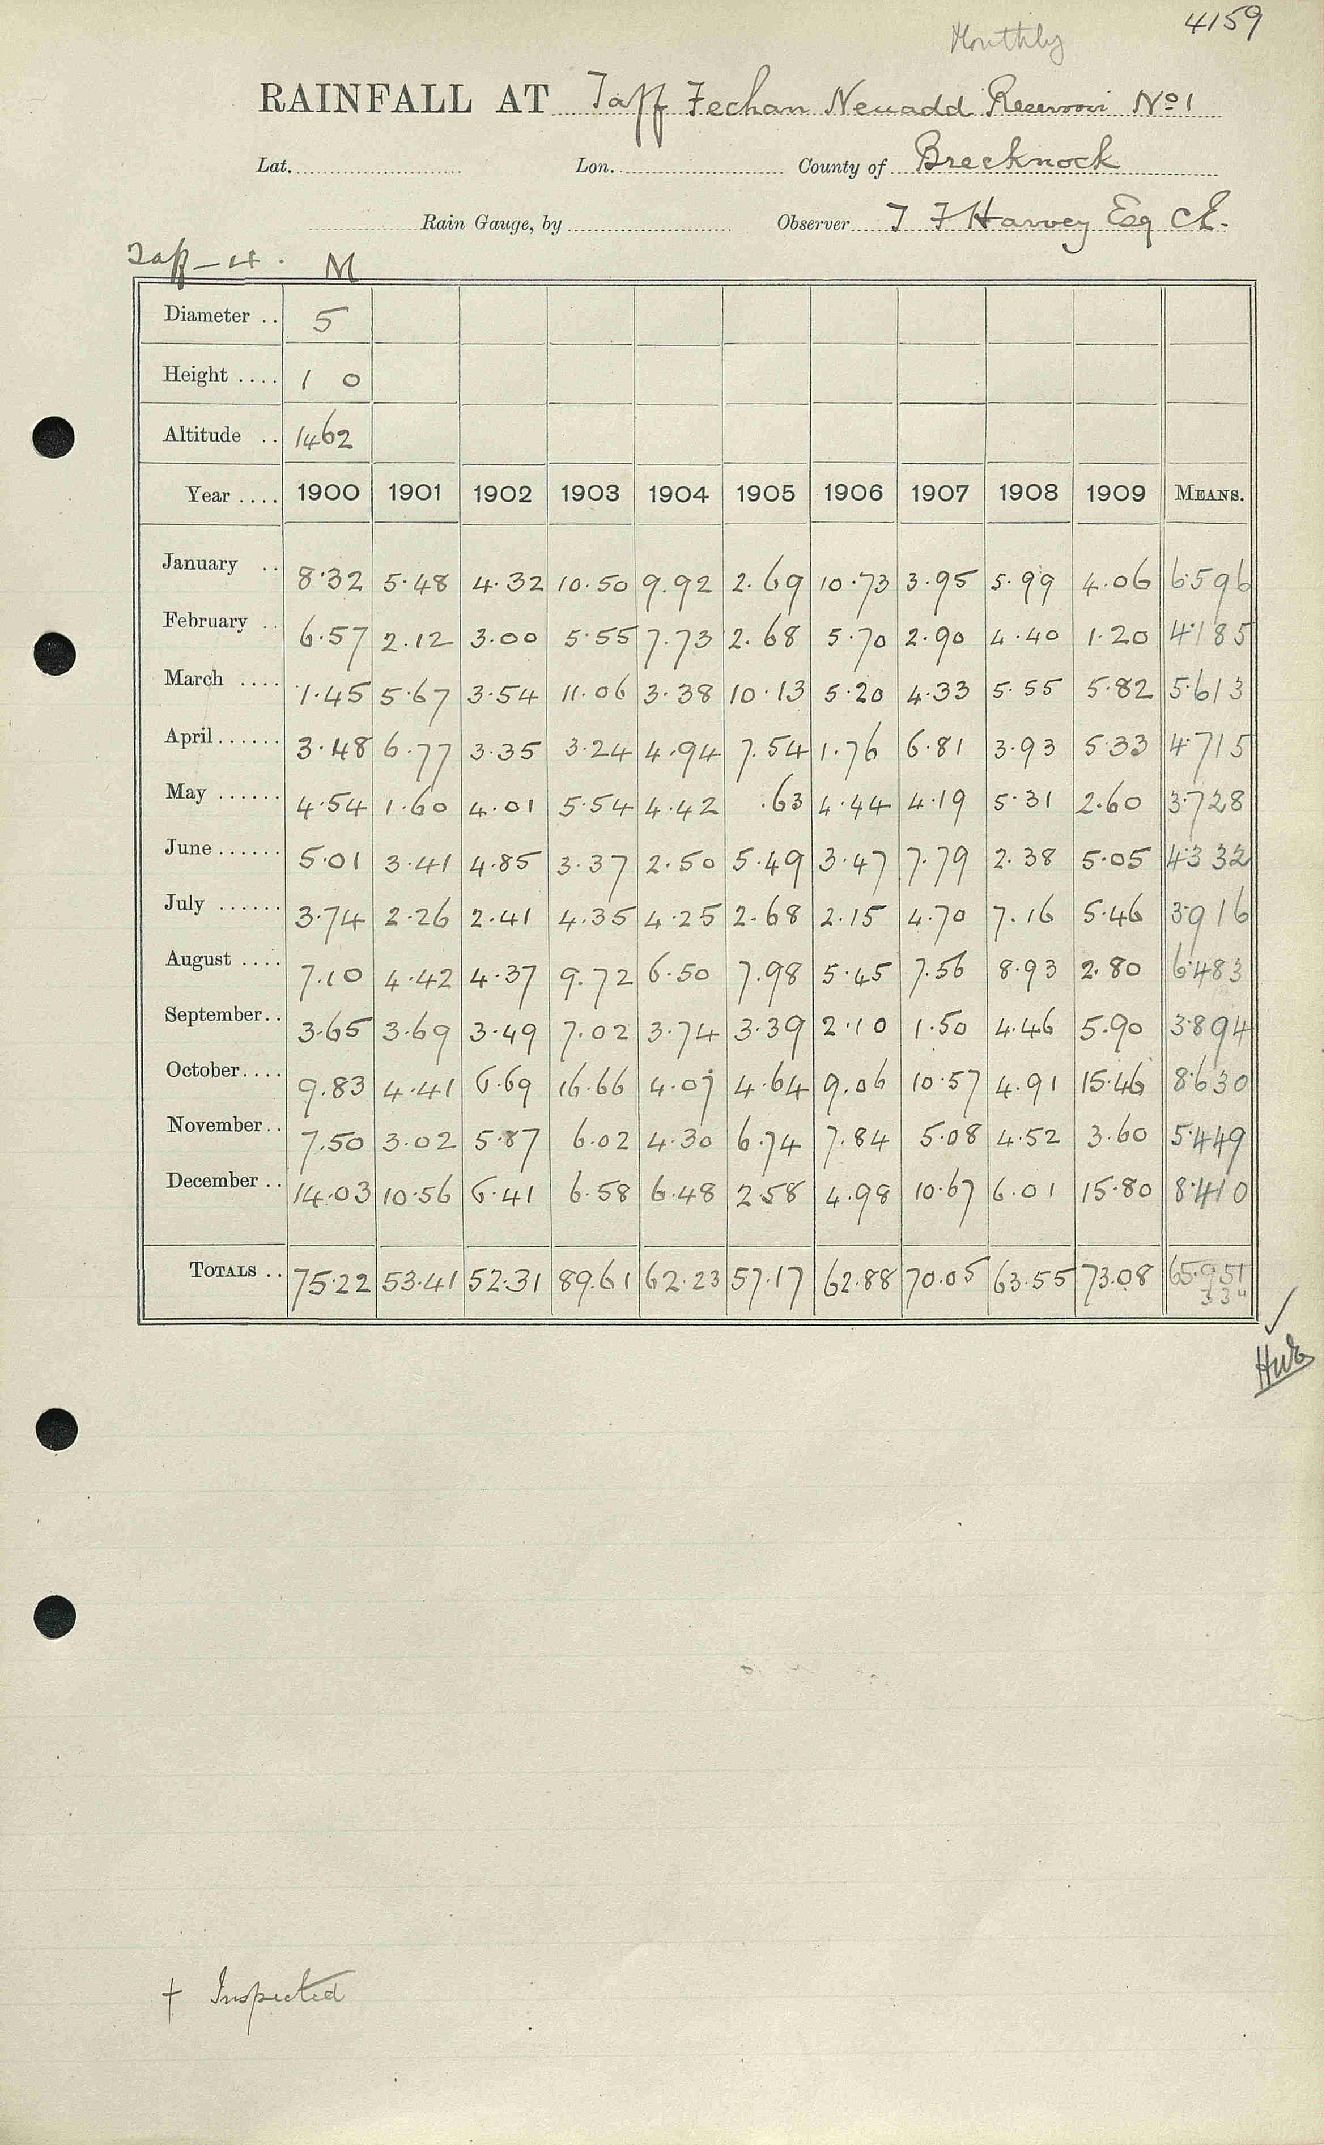 4159
Monthly
RAINFALL AT Taff Fechan Neuadd Reservoir No 1
Lat. Lon. County of Brecknock
Rain Gauge, by Observer T F Harvey Esq C.E.
Taff - 4. M
Diameter .. 5
Height .... 1 0
Altitude .. 1462
Year .... 1900 1901 1902 1903 1904 1905 1906 1907 1908 1909 MEANS.
January .. 8.32 5.48 4.32 10.50 9.92 2.69 10.73 3.95 5.99 4.06 6.596
February .. 6.57 2.12 3.00 5.55 7.73 2.68 5.70 2.90 4.40 1.20 4.185
March .... 1.45 5.67 3.54 11.06 3.38 10.13 5.20 4.33 5.55 5.82 5.613
April...... 3.48 6.77 3.35 3.24 4.94 7.54 1.76 6.81 3.93 5.33 4.715
May ...... 4.54 1.60 4.01 5.54 4.42 .63 4.44 4.19 5.31 2.60 3.728
June...... 5.01 3.41 4.85 3.37 2.50 5.49 3.47 7.79 2.38 5.05 4.332
July ...... 3.74 2.26 2.41 4.35 4.25 2.68 2.15 4.70 7.16 5.46 3.916
August .... 7.10 4.42 4.37 9.72 6.50 7.98 5.45 7.56 8.93 2.80 6.483
September.. 3.65 3.69 3.49 7.02 3.74 3.39 2.10 1.50 4.46 5.90 3.894
October.... 9.83 4.41 6.69 16.66 4.07 4.64 9.06 10.57 4.91 15.46 8.630
November.. 7.50 3.02 5.87 6.02 4.30 6.74 7.84 5.08 4.52 3.60 5.449
December .. 14.03 10.56 6.41 6.58 6.48 2.58 4.98 10.67 6.01 15.80 8.410
TOTALS .. 75.22 53.41 52.31 89.61 62.23 57.17 62.88 70.05 63.55 73.08 65.951
† Inspected